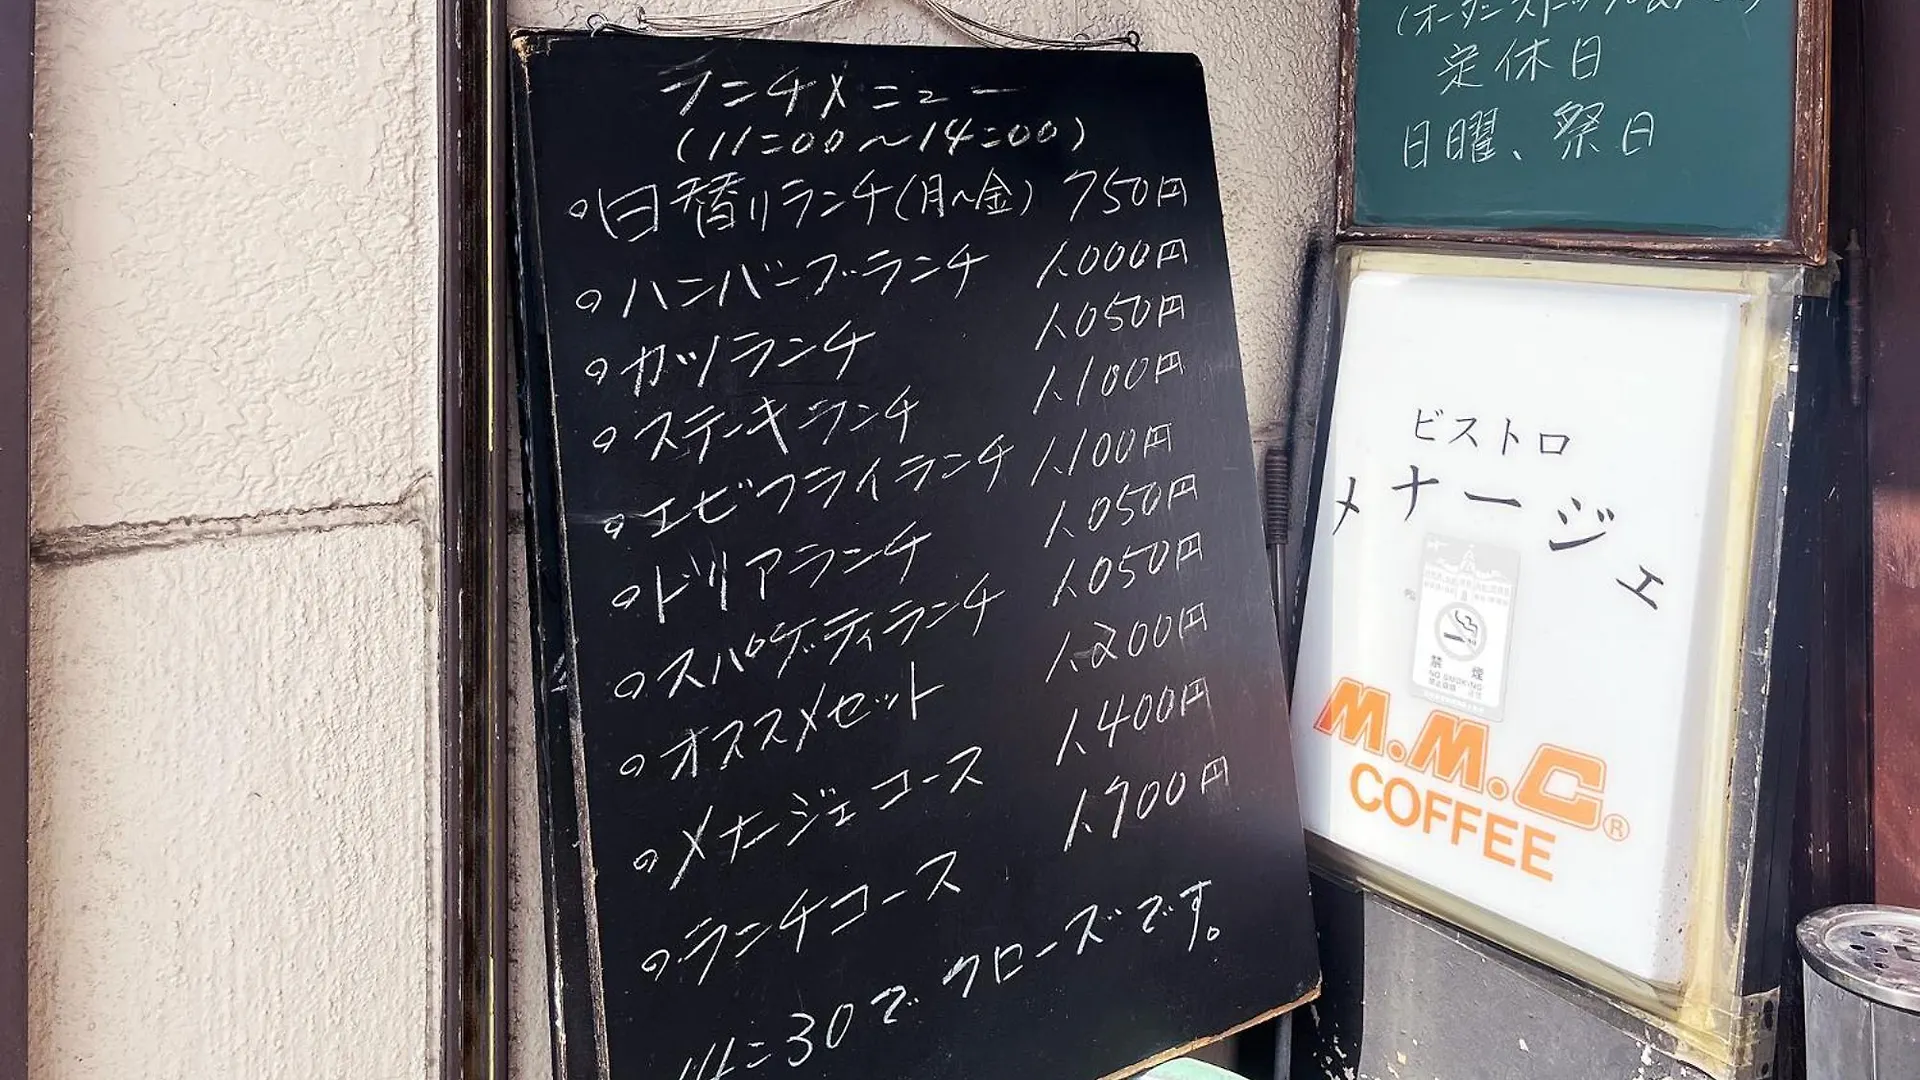 ランチメニュー
(11:00〜14:00)
○日替りランチ(月〜金) 750円
○ハンバーグランチ 1,000円
○カツランチ 1,050円
○ステーキランチ 1,100円
○エビフライランチ 1,100円
○ドリアランチ 1,050円
○スパゲティランチ 1,050円
○オススメセット 1,200円
○メナージェコース 1,400円
○ランチコース 1,700円
14:30でクローズです。
定休日
日曜、祭日
ビストロ
メナージェ
禁煙
NO SMOKING
M.M.C®
COFFEE